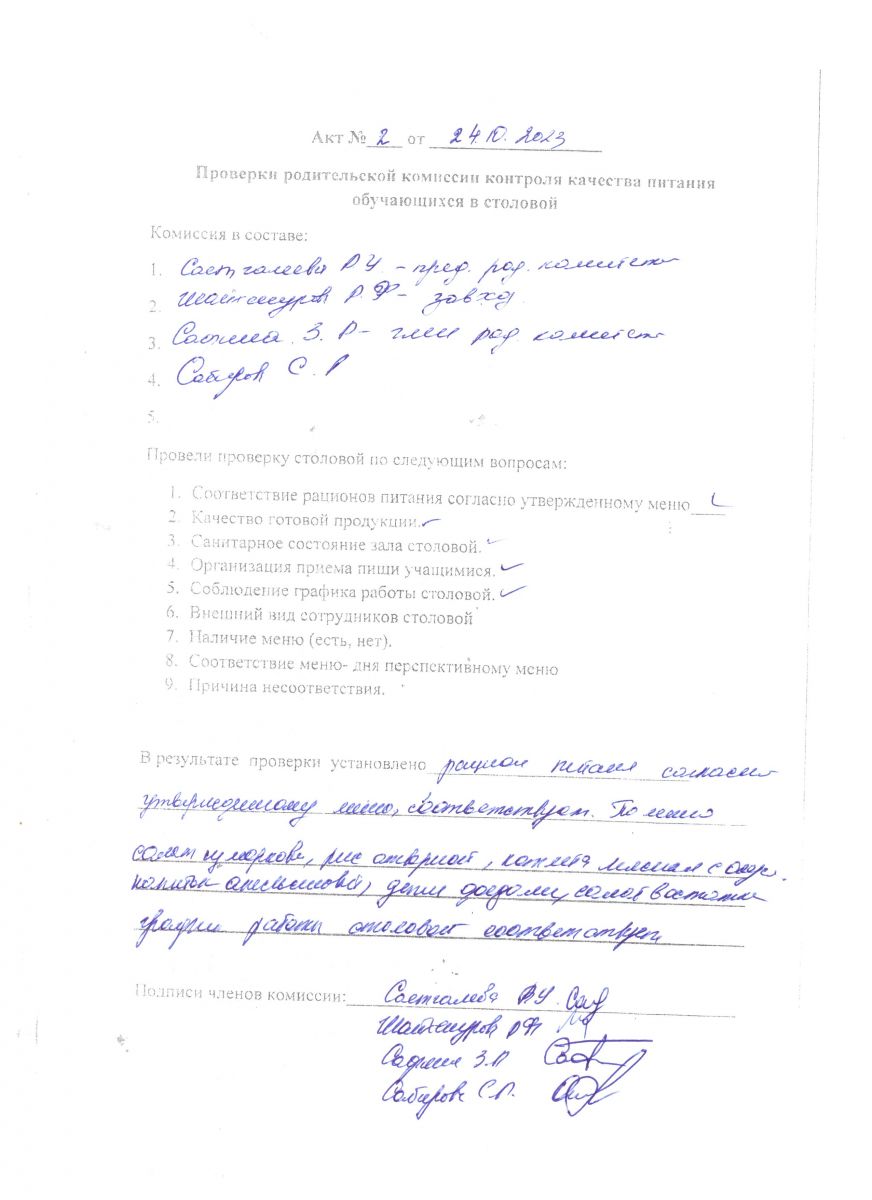 Акт № 2 от 24.10.2023
Проверки родительской комиссии контроля качества питания
обучающихся в столовой
Комиссия в составе:
1. Саетгалеева Р.У. - пред. род. комитета
2. Шаймануров Р.Ф - завхоз
3. З. Р - член род комитета
4. Сабиров С. Р
5.
Провели проверку столовой по следующим вопросам:
1. Соответствие рационов питания согласно утвержденному меню
2. Качество готовой продукции.
3. Санитарное состояние зала столовой.
4. Организация приема пищи учащимися.
5. Соблюдение графика работы столовой.
6. Внешний вид сотрудников столовой
7. Наличие меню (есть, нет).
8. Соответствие меню- дня перспективному меню
9. Причина несоответствия.
В результате проверки установлено рацион питания согласно
утвержденному меню, соответствует. По меню
салат из моркови, рис отварной, котлета мясная с
напиток апельсиновый, дети доедали, салат в остатке
график работы столовой соответствует
Подписи членов комиссии: Саетгалеева Р.У.
Шаймануров РФ
З.Р
Сабиров С.Р.